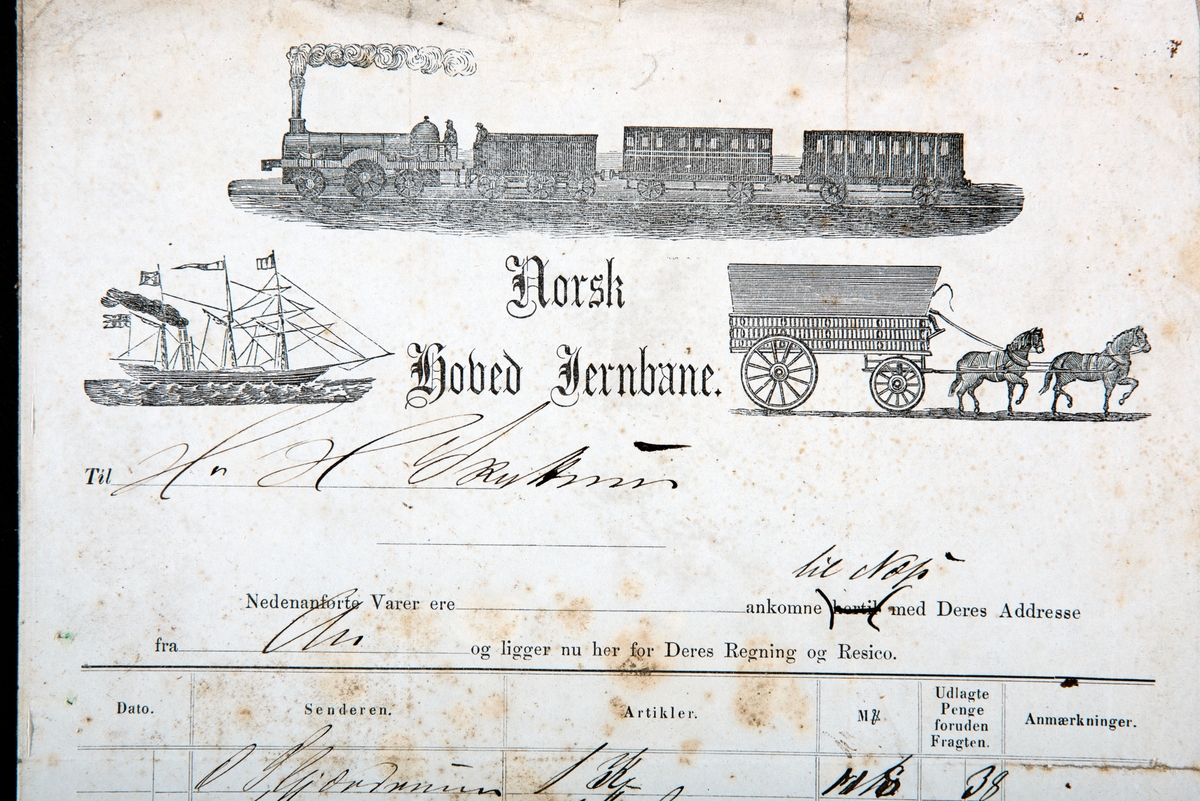 Norsk
Hoved Jernbane.
Til Hr H
til Næs
Nedenanførte Varer ere ankomne hertil med Deres Addresse
fra Chr og ligger nu her for Deres Regning og Resico.
Dato. Senderen. Artikler. M Udlagte Penge foruden Fragten. Anmærkninger.
1 38